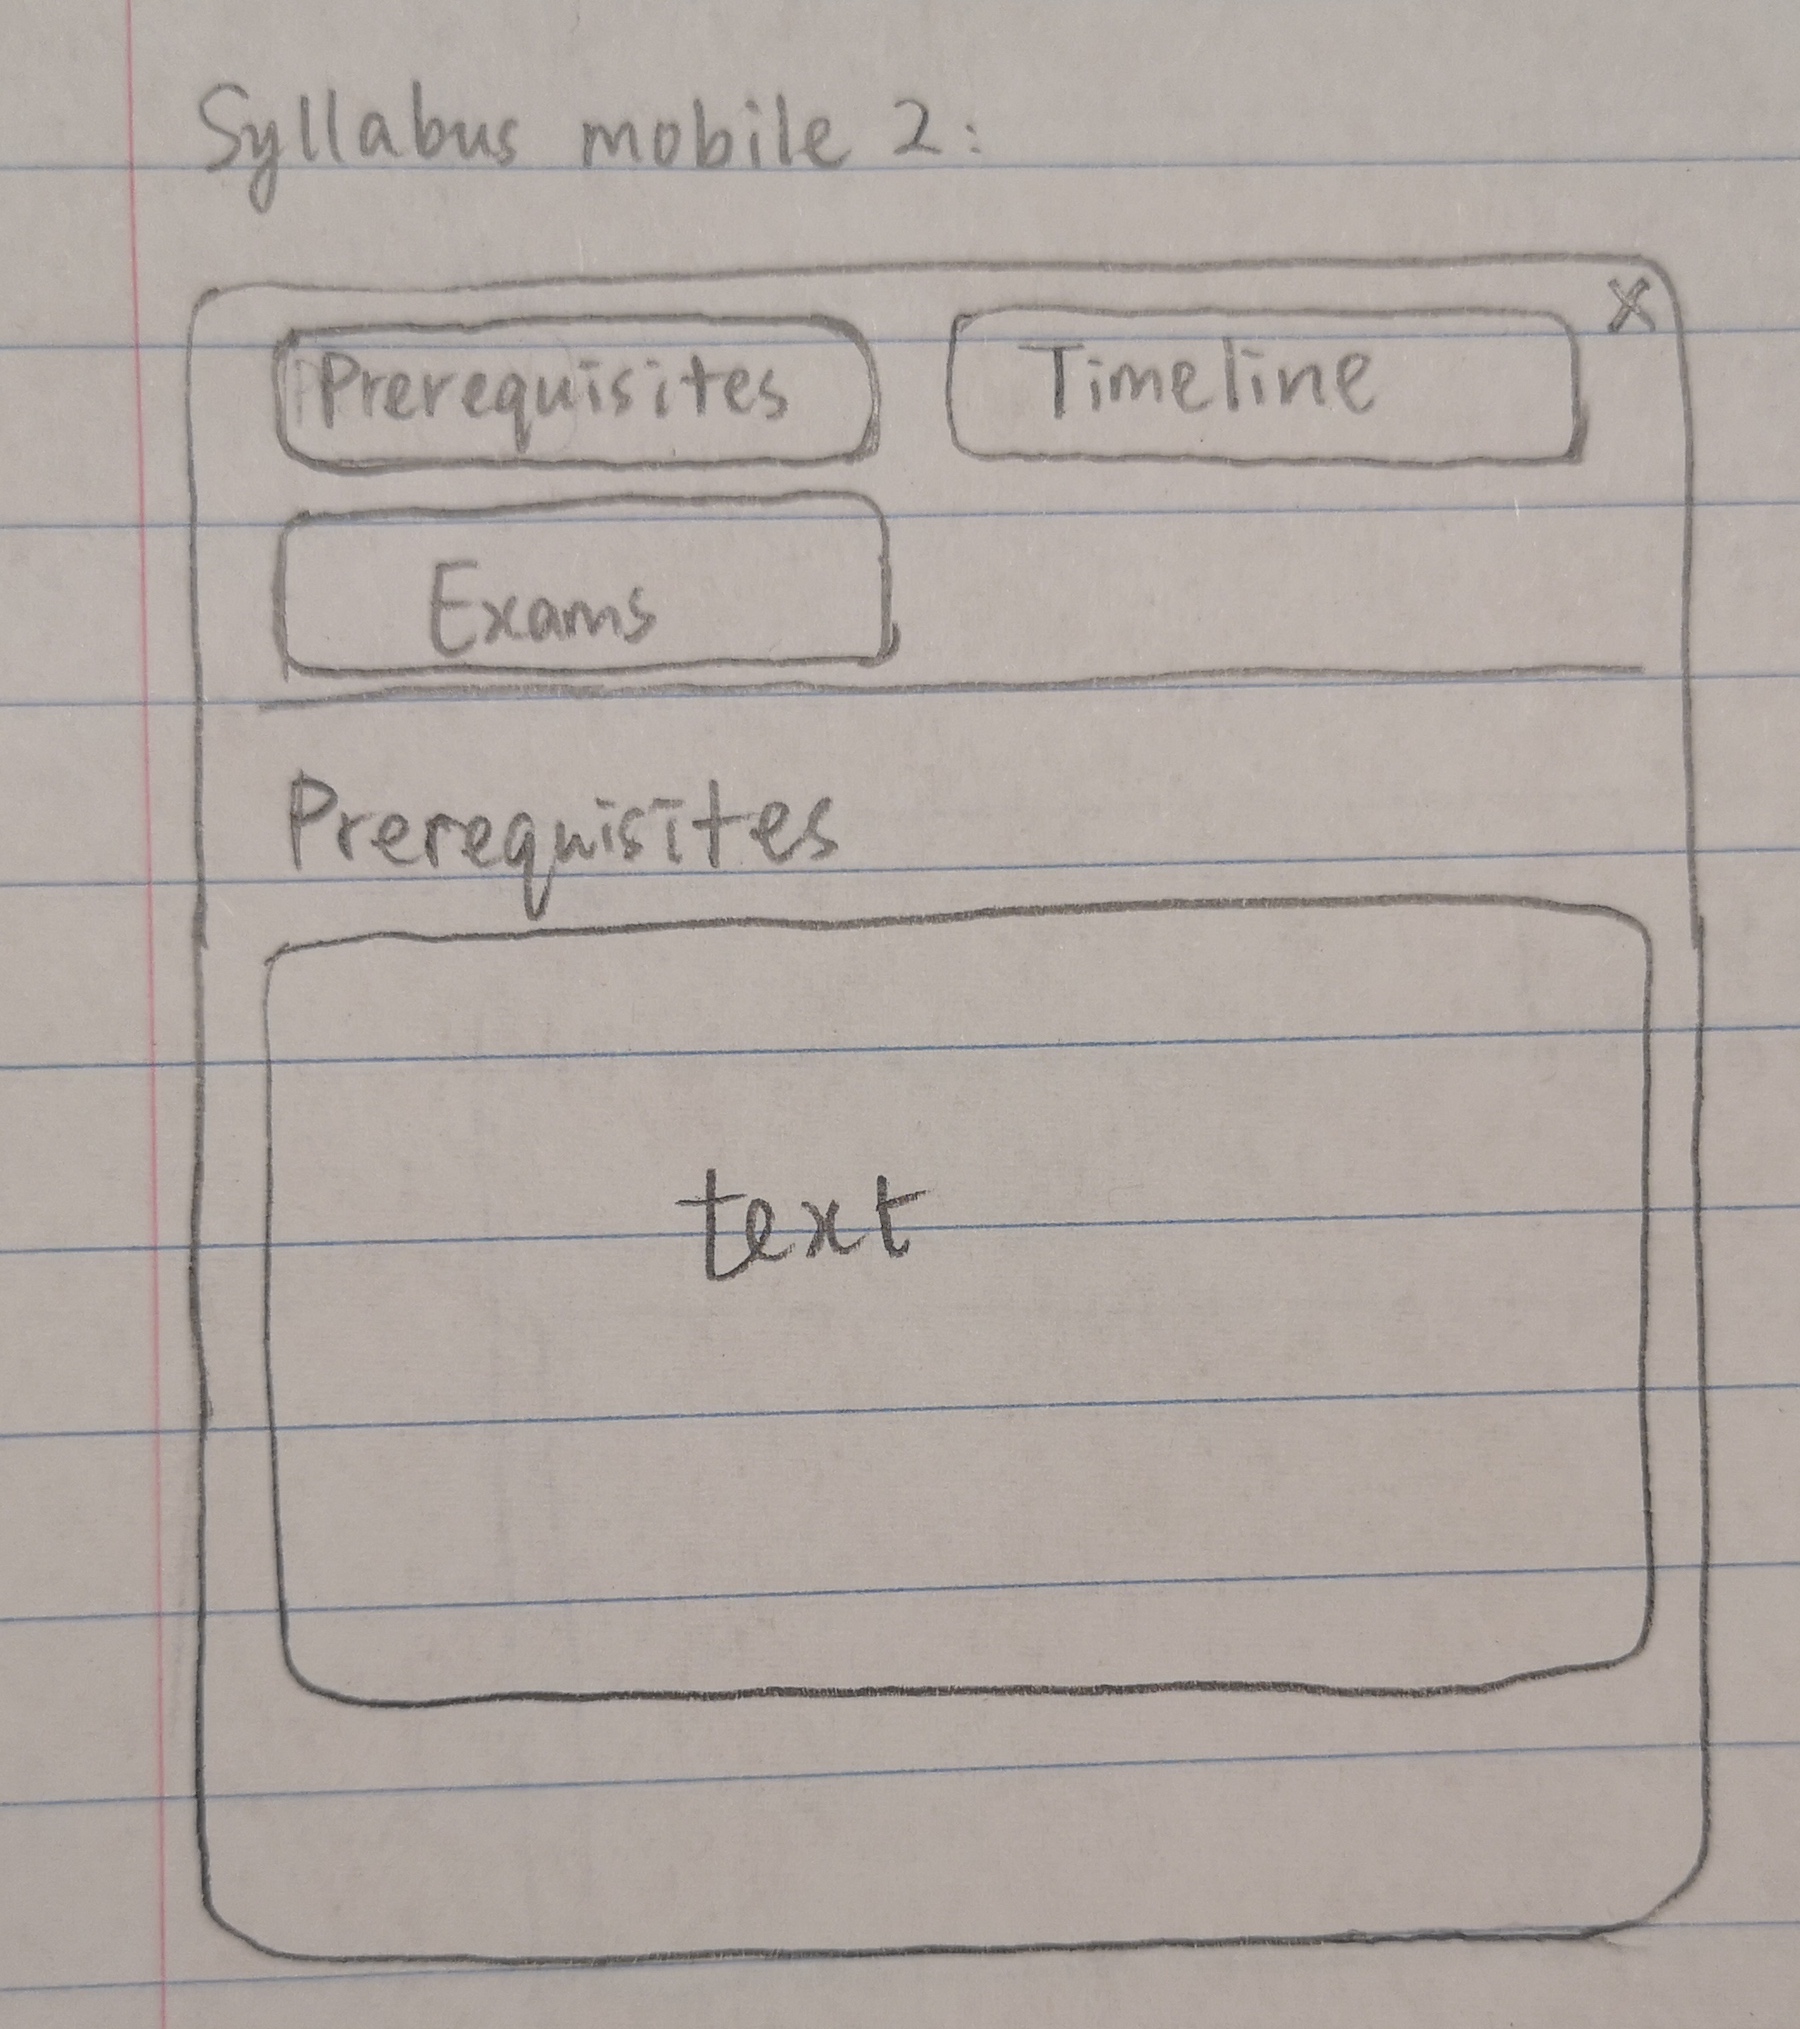 Syllabus mobile 2:
X
Prerequisites Timeline
Exams
Prerequisites
text